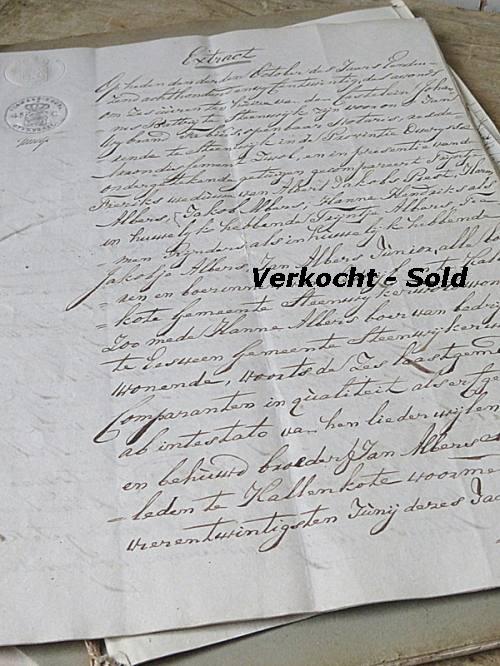 Extract
Op heden den derden October des Jaars Een dui-
zend achthonderd een en twintig des avonds
om zes uuren ten huize van den Castelein Johan-
te Steenwijk zijn voor ons Jan
Notaris, reside-
rende te Steenwijk in de Provintie Overijssel
en in presentie van de
ondergetekende getuigen gecompareert Trijntje
Freriks weduwe van Albert Jakobs Post, Harm
Albers, Jakob Albers, Hanne Hendriks als
in huwelijk hebbende Trijntje Albers,
als in huwelijk hebbende
Jakobje Albers en Jan Albers Junior, alle
en boerinnen
kote gemeente Steenwijkerwold won
Zoo mede Hanne Albers boer van bedrijf
te Eesveen gemeente Steenwijkerw
wonende, voorts de Zes laastgeme
Comparanten in qualiteit als erfge
ab intestato van hen lieder wijlen
en behuwd broeder Jan Albers
leden te Kallenkote
vierentwintigsten Junij dezes Jaa
Verkocht - Sold